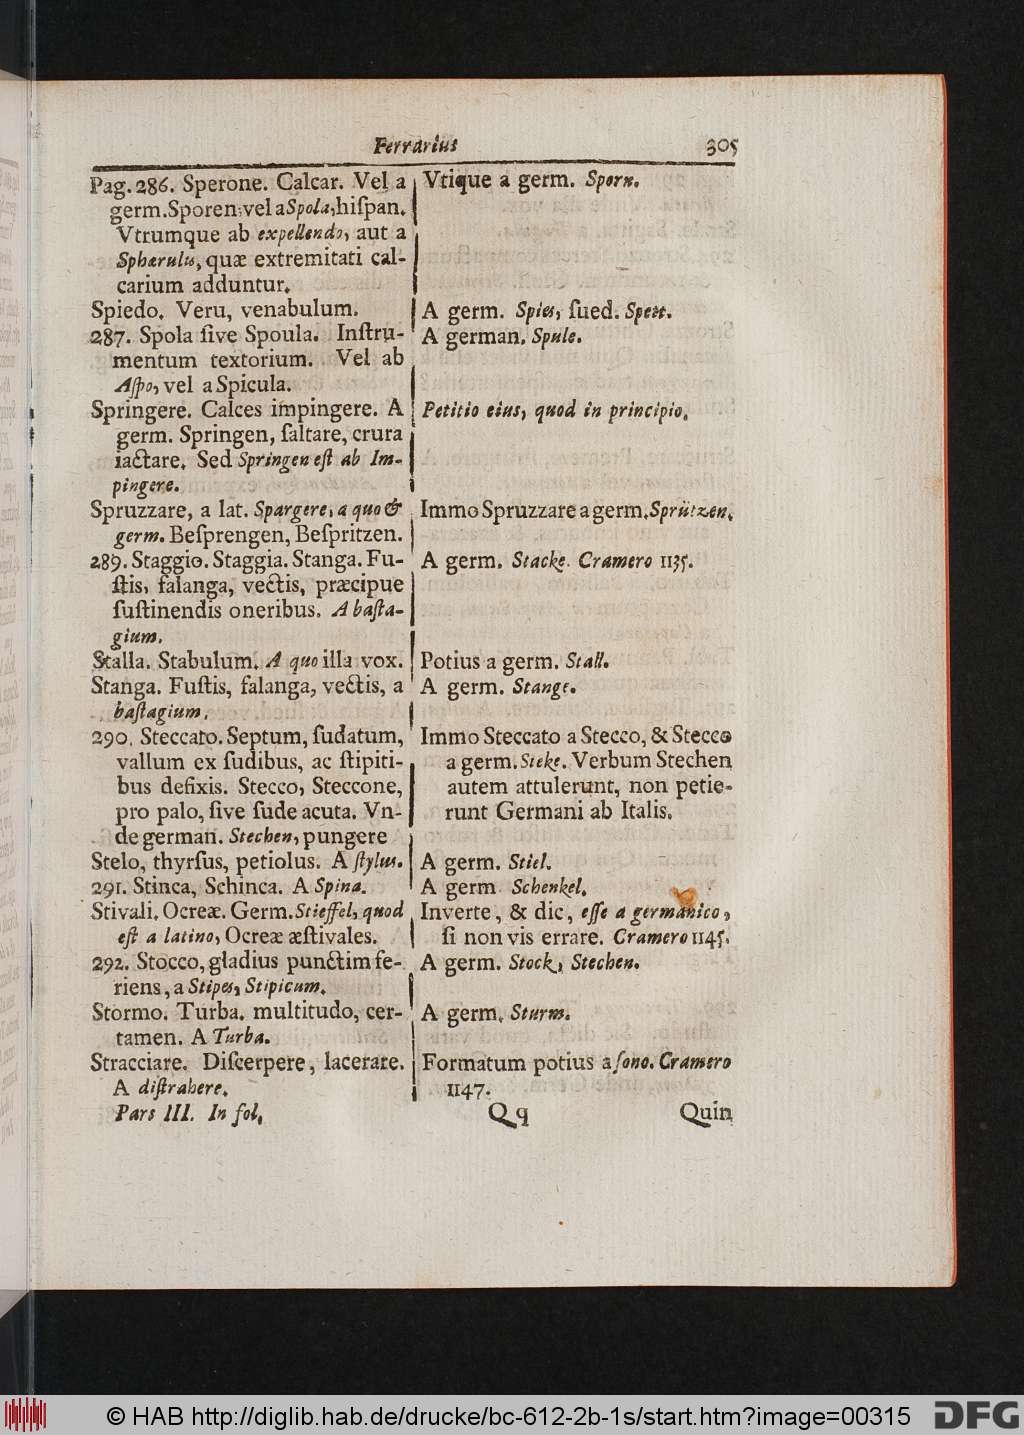 Ferrarius 305
Pag. 286. Sperone. Calcar. Vel a
germ. Sporen; vel a Spola, hiſpan.
Vtrumque ab expellendo, aut a
Sphærulis, quæ extremitati cal-
carium adduntur.
Spiedo. Veru, venabulum.
287. Spola ſive Spoula. Inſtru-
mentum textorium. Vel ab
Aſpo, vel a Spicula.
Springere. Calces impingere. A
germ. Springen, ſaltare, crura
iactare. Sed Springen eſt ab Im-
pingere.
Spruzzare, a lat. Spargere, a quo &
germ. Beſprengen, Beſpritzen.
289. Staggio. Staggia. Stanga. Fu-
ſtis, falanga, vectis, præcipue
ſuſtinendis oneribus. A baſta-
gium.
Stalla. Stabulum. A quo illa vox.
Stanga. Fuſtis, falanga, vectis, a
baſtagium.
290. Steccato. Septum, ſudatum,
vallum ex ſudibus, ac ſtipiti-
bus defixis. Stecco, Steccone,
pro palo, ſive ſude acuta. Vn-
de german. Stechen, pungere
Stelo, thyrſus, petiolus. A ſtylus.
291. Stinca, Schinca. A Spina.
Stivali. Ocreæ. Germ. Stieffel, quod
eſt a latino, Ocreæ æſtivales.
292. Stocco, gladius punctim fe-
riens, a Stipes, Stipicum.
Stormo. Turba. multitudo, cer-
tamen. A Turba.
Stracciare. Diſcerpere, lacerare.
A diſtrahere.
Vtique a germ. Sporn.
A germ. Spies, ſued. Spett.
A german. Spule.
Petitio eius, quod in principio.
Immo Spruzzare a germ. Sprützen.
A germ. Stacke. Cramero 1135.
Potius a germ. Stall.
A germ. Stange.
Immo Steccato a Stecco, & Stecco
a germ. Steke. Verbum Stechen
autem attulerunt, non petie-
runt Germani ab Italis.
A germ. Stiel.
A germ. Schenkel.
Inverte, & dic, eſſe a germanico,
ſi non vis errare. Cramero 1145.
A germ. Stock, Stechen.
A germ. Sturm.
Formatum potius a ſono. Cramero
1147.
Pars III. In fol. Qq Quin
© HAB http://diglib.hab.de/drucke/bc-612-2b-1s/start.htm?image=00315 DFG